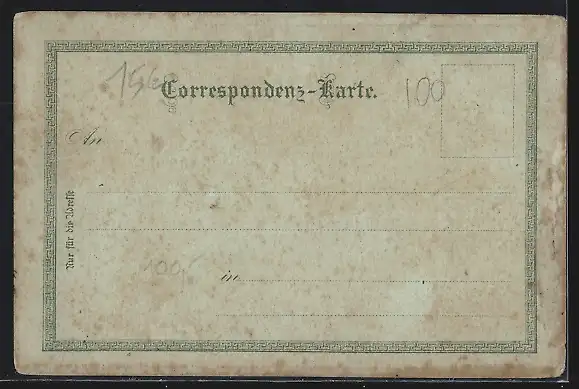 Correspondenz-Karte.
100
An
Nur für die Adresse
100,-
in